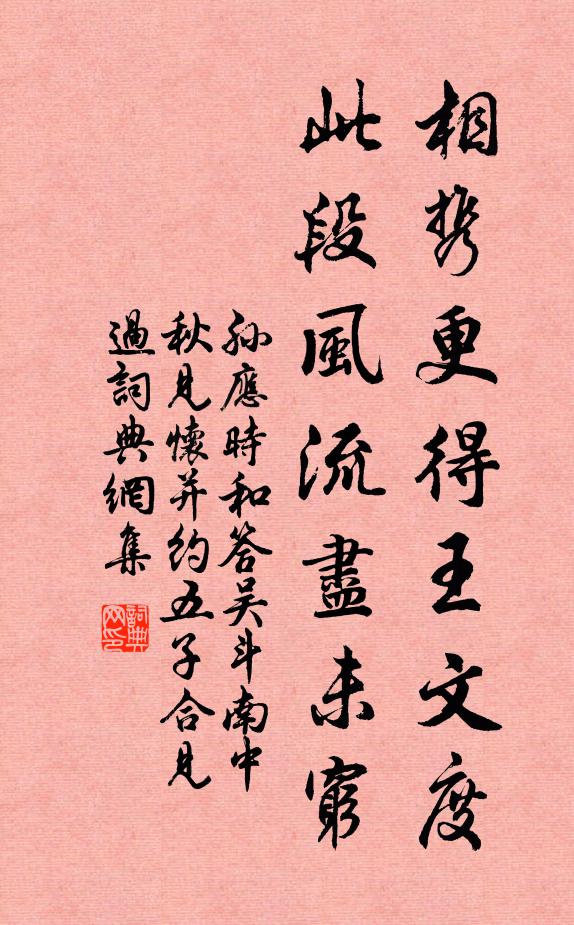 相携更得王文度
此段風流盡未窮
孫應時和答吴斗南中
秋見懷并約五子合見
過詞典網集
詞典网印